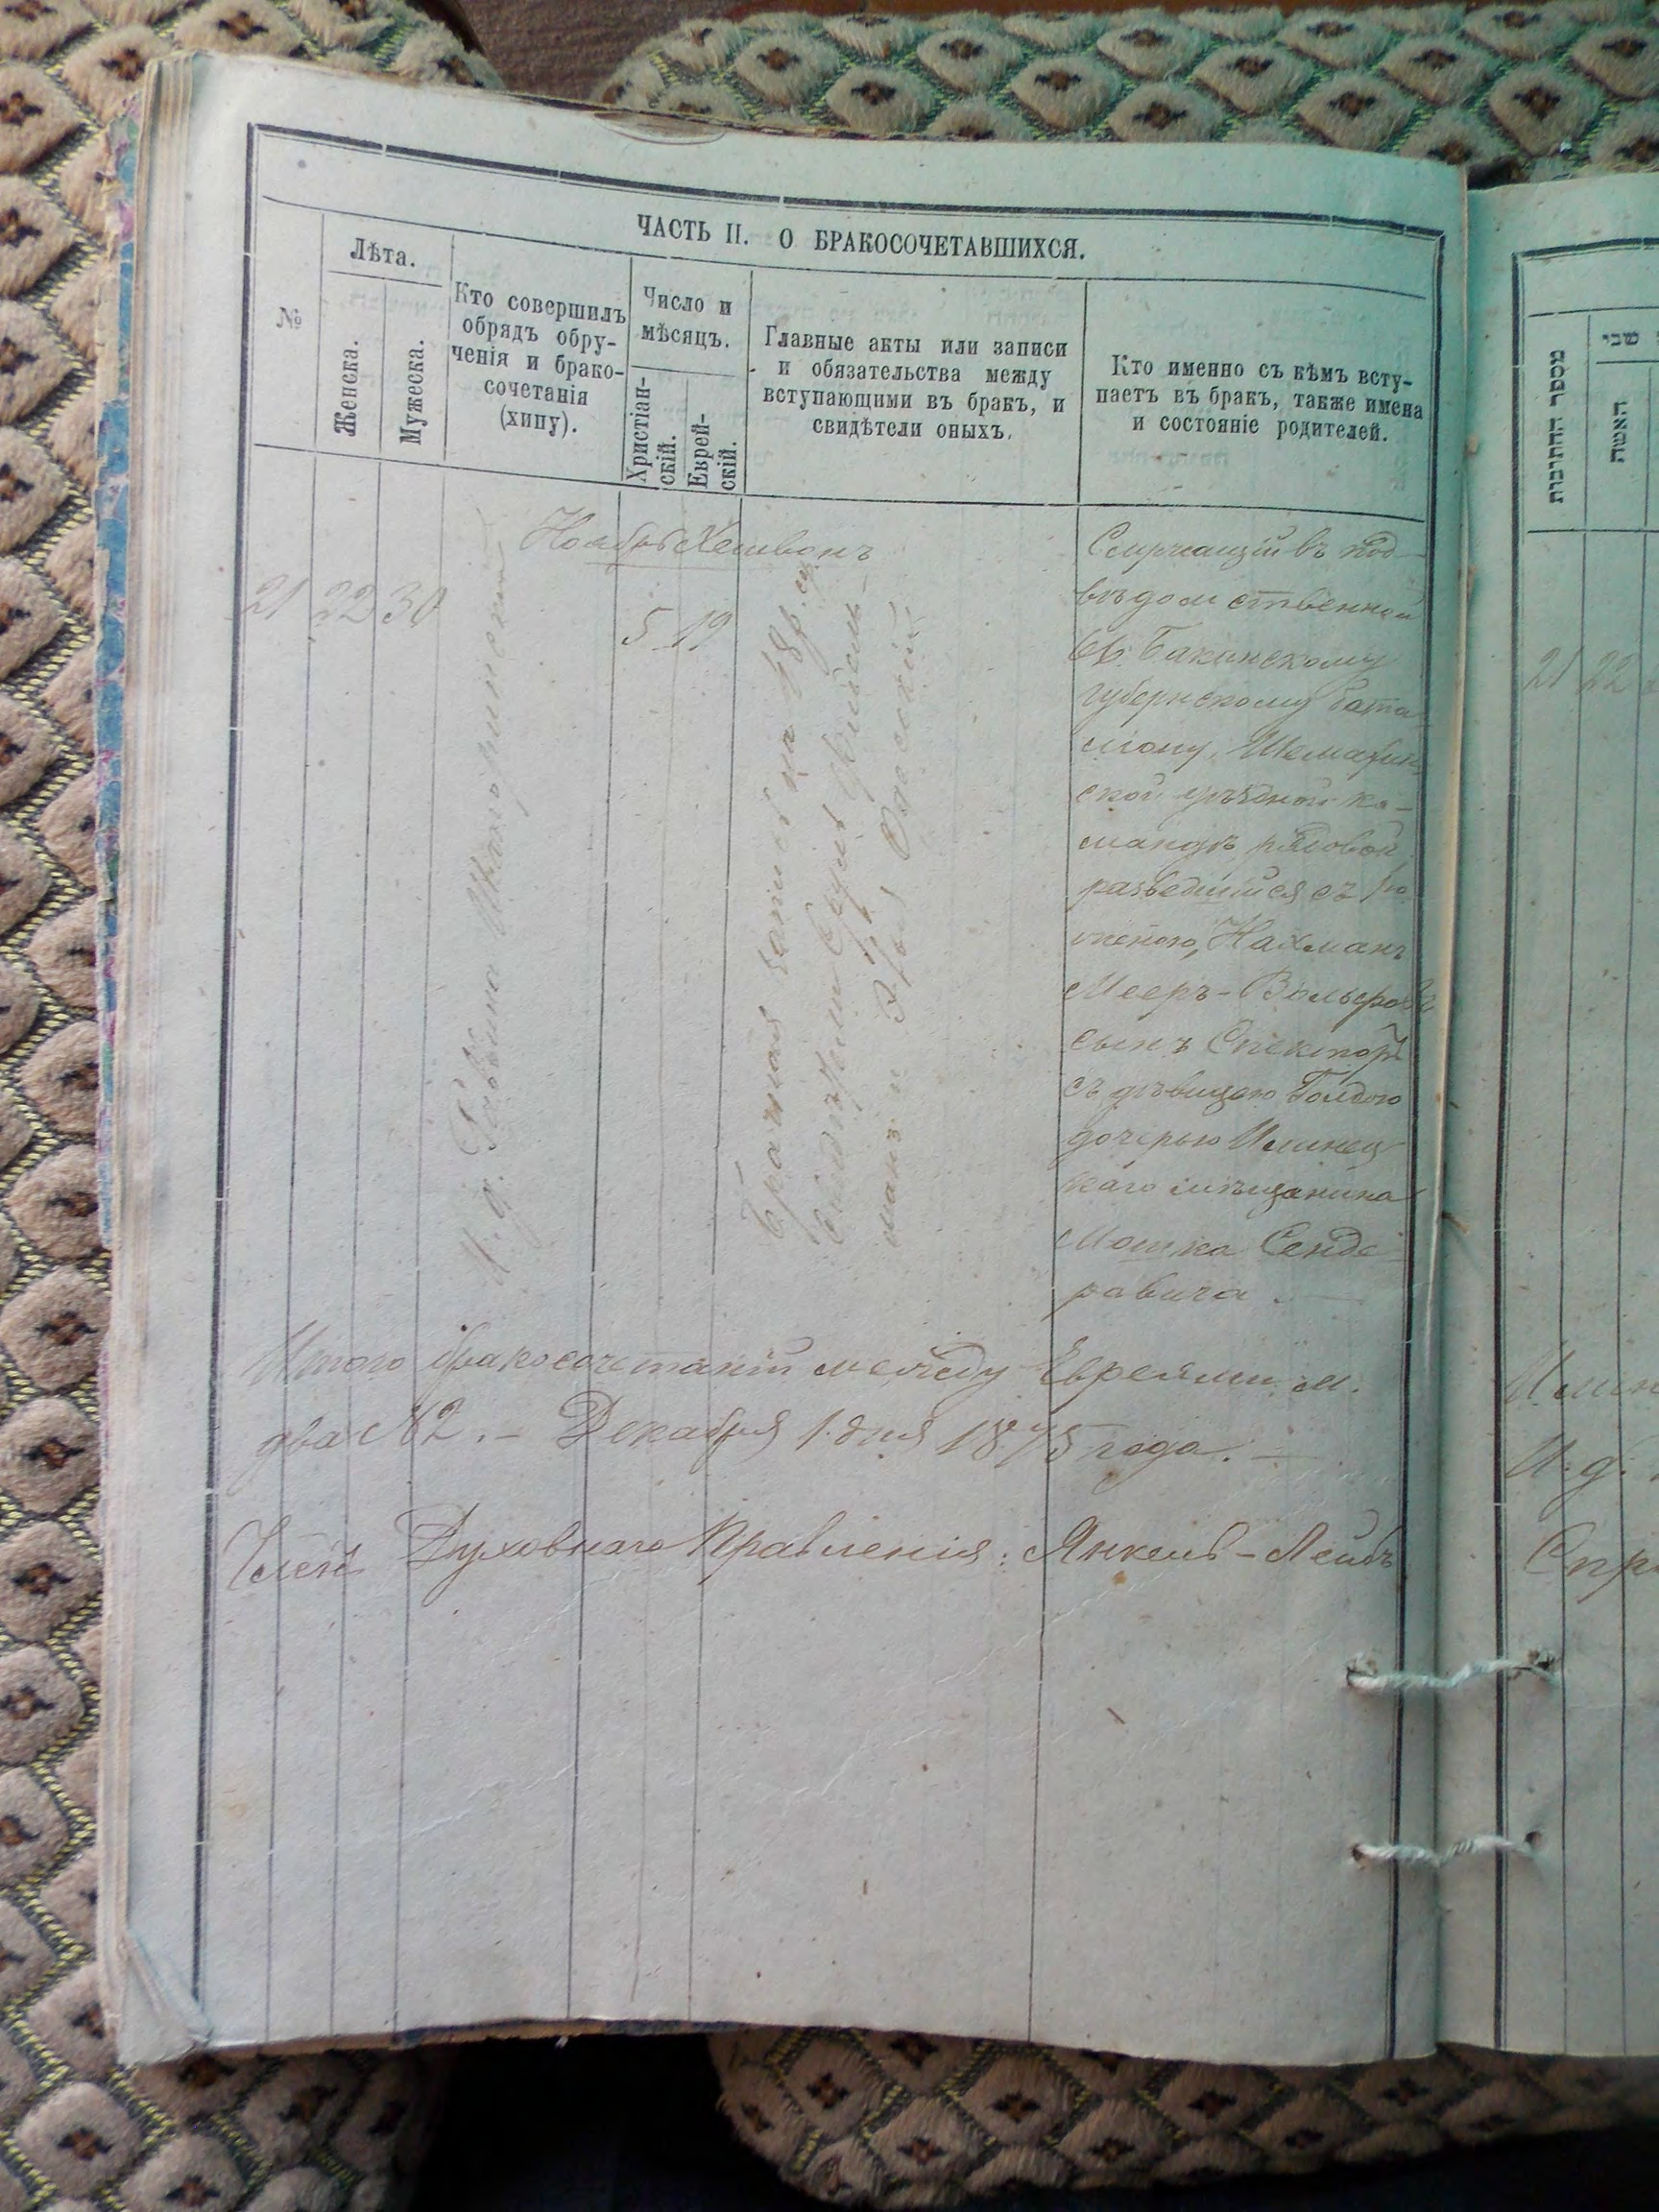 ЧАСТЬ II. О БРАКОСОЧЕТАВШИХСЯ.
№
Лѣта.
Женска.
Мужеска.
Кто совершилъ
обрядъ обру-
ченія и брако-
сочетанія
(хипу).
Число и
мѣсяцъ.
Христіан-
скій.
Еврей-
скій.
Главные акты или записи
и обязательства между
вступающими въ бракъ, и
свидѣтели оныхъ.
Кто именно съ кѣмъ всту-
паетъ въ бракъ, также имена
и состояніе родителей.
Ноябрь Хешвонъ
21 22 30
5 19
И. д. Раввина
Брачная запись на 48 р. с.
Свидѣтели
манъ и
Служащій въ под-
вѣдомственной
Бакинскому
губернскому бата
ліону, Шемахин
ской уѣздной ко-
мандѣ рядовой
разведшійся съ
женою, Нахманъ
Мееръ-Вольфовъ
сынъ Спекторъ
съ дѣвицею Голдою
дочерью Илинец
каго мѣщанина
Мошка Сенде
ровича.
Итого бракосочетаній между Евреями м.
два № 2. - Декабря 1 дня 1875 года. -
Членъ Духовнаго Правленія: Янкель-Лейбъ
מספר החתונות
שני
האשה
21 22
И. д.